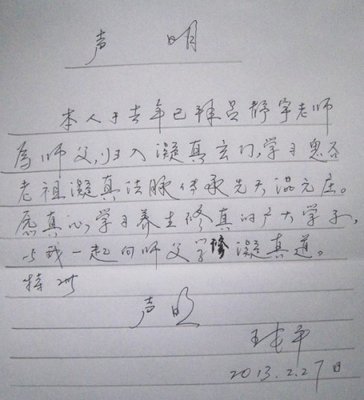 声 明
本人于去年已拜吕宇老师
为师父,归入凝真玄门,学习鬼谷
老祖凝真法脉传承先天混元庄。
愿真心学习养生修真的广大学子,
与我一起向师父学修凝真道。
特此
声明
王平
2013.2.27日